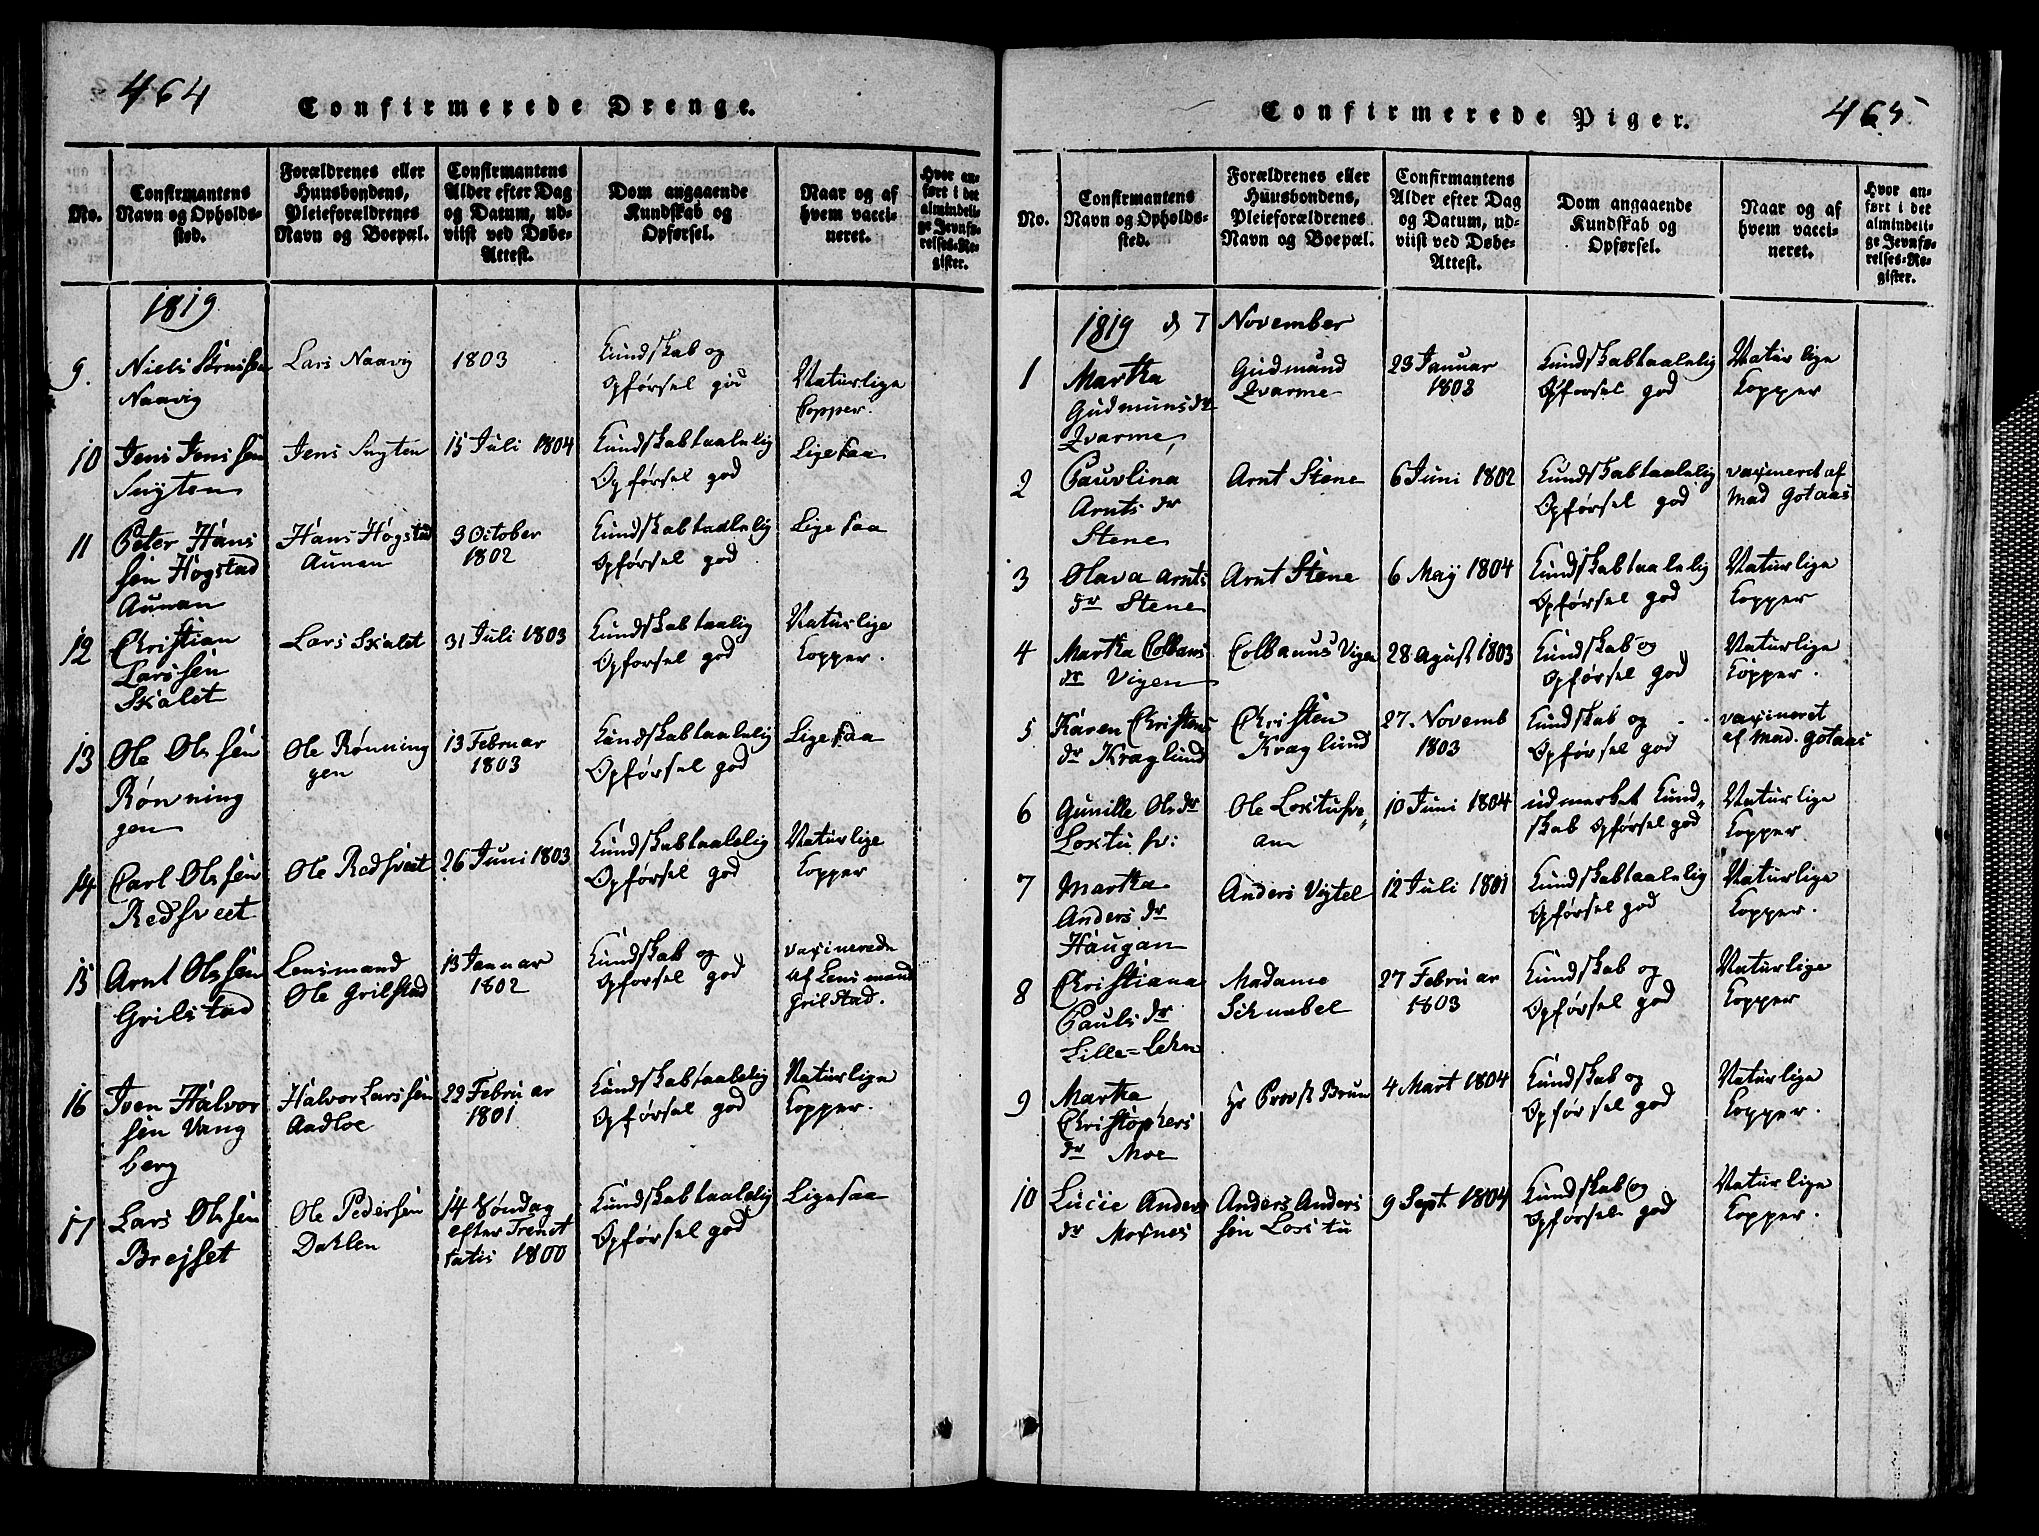 464
Confirmerede Drenge.
No.
Confirmantens
Navn og Opholds-
sted.
Forældrenes eller
Huusbondens,
Pleieforældrenes
Navn og Boepæl.
Confirmantens
Alder efter Dag
og Datum, ud-
viist ved Døbe-
Attest.
Dom angaaende
Kundskab og
Opførsel.
Naar og af
hvem vacci-
neret.
Hvor an-
ført i det
almindeli-
ge Jevnfø-
relses-Re-
gister.
1819
9.
Niels
Naavig
Lars Naavig
1803
Kundskab og
Opførsel god
Naturlige
Copper.
10
Jens Jenssen
Suyten
Jens Suyten
15 Juli 1804
Kundskab taalelig
Opførsel god
Ligesaa
11
Peter Hans
sen Hogstad
Aunan
Hans Hogstad
Aunan
9 October
1802
Kundskab taalelig
Opførsel god
Lige saa
12
Christian
Larssen
Skalet
Lars Skalet
31 Juli 1803
Kundskab taalig
Opførsel god
Naturlige
Kopper.
13
Ole Olssen
Rønning
gen
Ole Rønning
gen
13 Februar
1803
Kundskab taalelig
Opførsel god
Ligesaa
14
Carl Olssen
Redsveet
Ole Redsveet
26 Juni 1803
Kundskab taalelig
Opførsel god
Naturlige
Kopper
15
Arnt Olssen
Grilstad
Lensmand
Ole Grilstad
13 Januar
1802
Kundskab og
Opførsel god
vaxinerede
af Lensmand
Grilstad.
16
Iven Halvor
sen Vang
berg
Halvor Larssen
Aadloe
22 Februar
1801
Kundskab taalelig
Opførsel god
Naturlige
Kopper.
17
Lars Olssen
Brejset
Ole Pedersen
Dahlen
14 Søndag
efter Trenet
tatis 1800
Kundskab taalelig
Opførsel god
Ligesaa
Confirmerede Piger.
465
No.
Confirmantens
Navn og Opholds-
sted.
Forældrenes eller
Huusbondens,
Pleieforældrenes
Navn og Boepæl.
Confirmantens
Alder efter Dag
og Datum, ud-
viist ved Døbe-
Attest.
Dom angaaende
Kundskab og
Opførsel.
Naar og af
hvem vacci-
neret.
Hvor an-
ført i det
almindeli-
ge Jevnfø-
relses-Re-
gister.
1819 d 7 November
1
Martha
Gudmunsdr
Qvarme,
Gudmund
Qvarme
23 Januar
1803
Kundskab taalelig
Opførsel god
Naturlige
Kopper
2
Pauvlina
Arnts dr
Stene
Arnt Stene
6 Juni 1802
Kundskab taalelig
Opførsel god
vaxineret af
Mad Gotaas
3
Olava Arnts
dr Stene
Arnt Stene
6 May 1804
Kundskab taalelig
Opførsel god
Naturlige
Kopper
4
Martha Colbans
dr Vigen
Colbanus Vigen
28 Agust 1803
Kundskab og
Opførsel god
Naturlige
Kopper.
5
Karen Christens
dr Kraglund
Christen
Kraglund
27. Novemb
1803
Kundskab og
Opførsel god
vaxineret
af Mad. Gotaas
6
Gunille Olsdr
Ole
10 Juni 1804
udmerket Kund-
skab Opførsel god
Naturlige
Kopper.
7
Martha
Anders dr
Haugan
Anders Vigtel
12 Juli 1801
Kundskab taalelig
Opførsel god
Naturlige
Kopper.
8
Christiana
Pauls dr
Lille=Lehn
Madame
Schnabel
27 Februar
1803
Kundskab og
Opførsel god
Naturlige
Kopper
9
Martha
Christophers
dr Moe
Hr Provst Brun
4 Mart 1804
Kundskab og
Opførsel god
Naturlige
Kopper.
10
Lucie Anders
dr Moxnes
Anders Anders
sen Loxtu
9 Sept 1804
Kundskab og
Opførsel god
Naturlige
Kopper.